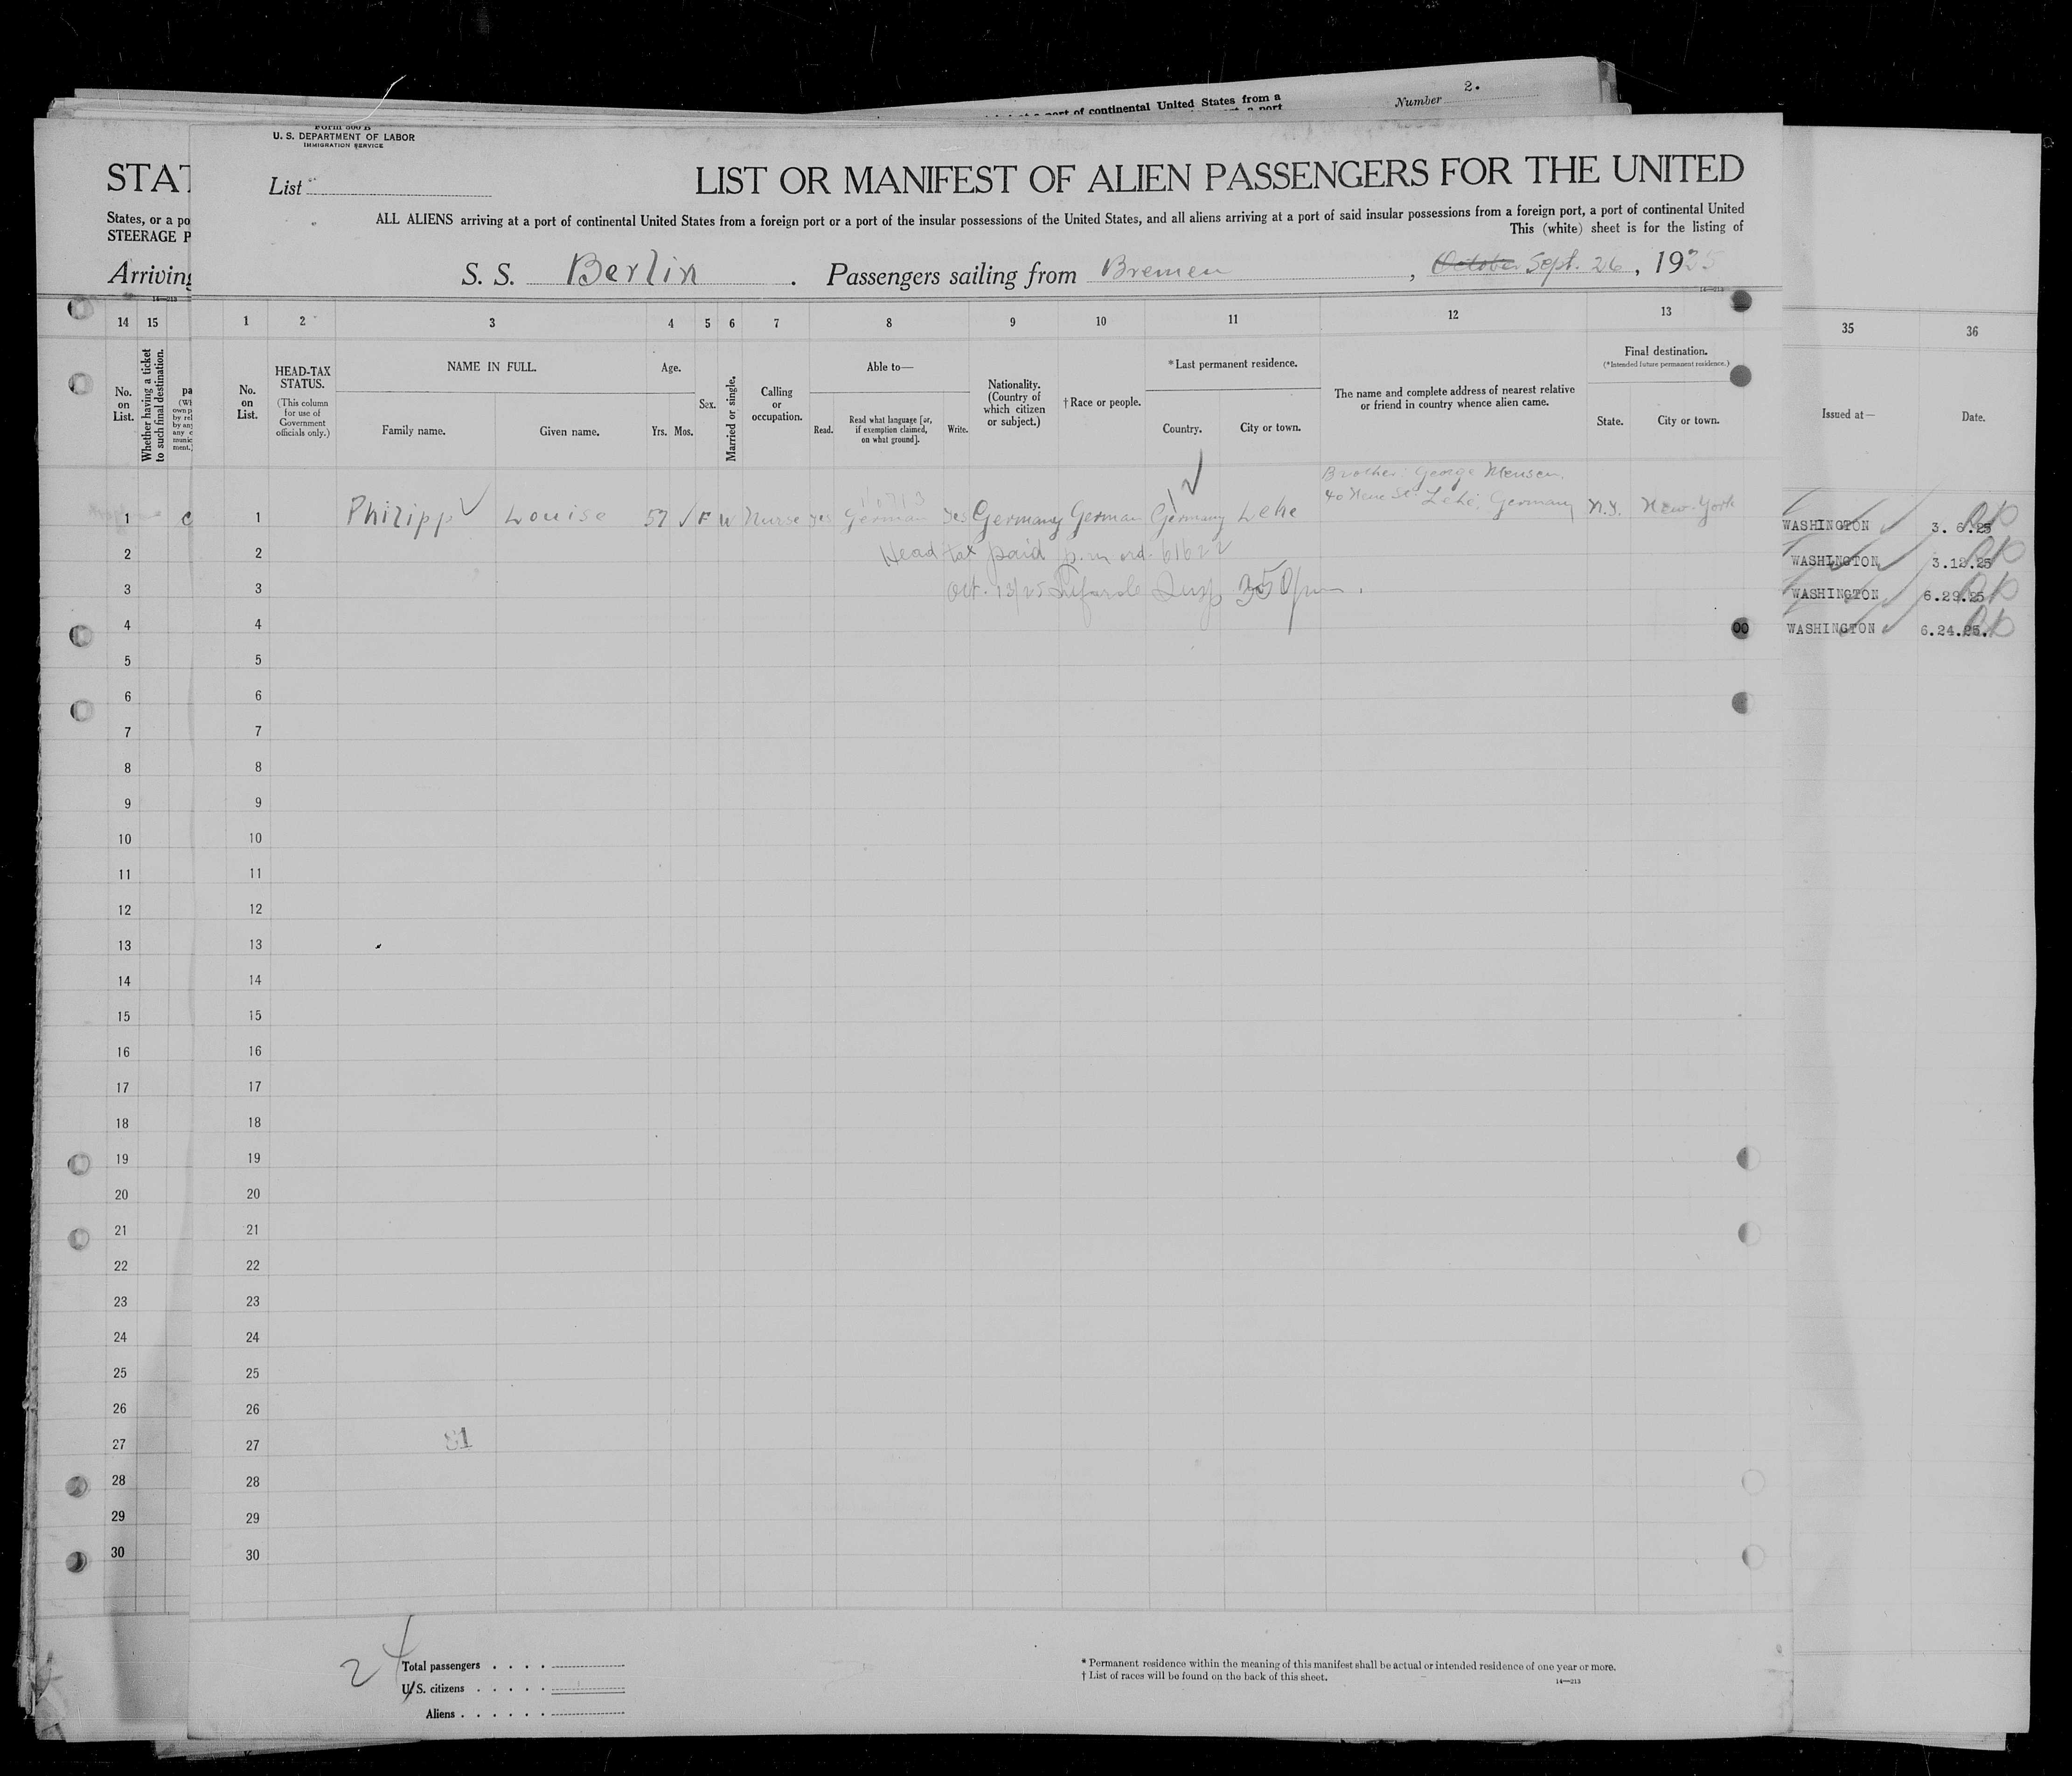 2.
rt of continental United States from a
Number
Form 500 B
U. S. DEPARTMENT OF LABOR
IMMIGRATION SERVICE
STAT
List
LIST OR MANIFEST OF ALIEN PASSENGERS FOR THE UNITED
States, or a po
ALL ALIENS arriving at a port of continental United States from a foreign port or a port of the insular possessions of the United States, and all aliens arriving at a port of said insular possessions from a foreign port, a port of continental United
STEERAGE P
This (white) sheet is for the listing of
Arriving
S. S. Berlin . Passengers sailing from Bremen , October Sept. 26, 1925
14 15 1 2 3 4 5 6 7 8 9 10 11 12 13 35 36
No. on List.
Whether having a ticket to such final destination.
No. on List.
HEAD-TAX STATUS.
(This column for use of Government officials only.)
NAME IN FULL.
Family name.
Given name.
Age.
Yrs. Mos.
Sex.
Married or single.
Calling or occupation.
Able to—
Read.
Read what language [or, if exemption claimed, on what ground].
Write.
Nationality. (Country of which citizen or subject.)
†Race or people.
*Last permanent residence.
Country.
City or town.
The name and complete address of nearest relative or friend in country whence alien came.
Final destination.
(*Intended future permanent residence.)
State.
City or town.
Issued at—
Date.
Brother: George Mensen,
Lehe, Germany
1 1 Philipp Louise 57 F W Nurse yes German yes Germany German Germany Lehe N.Y. New-York WASHINGTON 3. 6.25
2 2 Head tax paid p. m ord. 61622 WASHINGTON 3.12.25
3 3 Oct. 13/25 Insp 350 pm. WASHINGTON 6.29.25
4 4 00 WASHINGTON 6.24.25.
5 5
6 6
7 7
8 8
9 9
10 10
11 11
12 12
13 13
14 14
15 15
16 16
17 17
18 18
19 19
20 20
21 21
22 22
23 23
24 24
25 25
26 26
27 27 81
28 28
29 29
30 30
24
Total passengers . . . .
U. S. citizens . . . . .
Aliens . . . . . .
* Permanent residence within the meaning of this manifest shall be actual or intended residence of one year or more.
† List of races will be found on the back of this sheet.
14—213